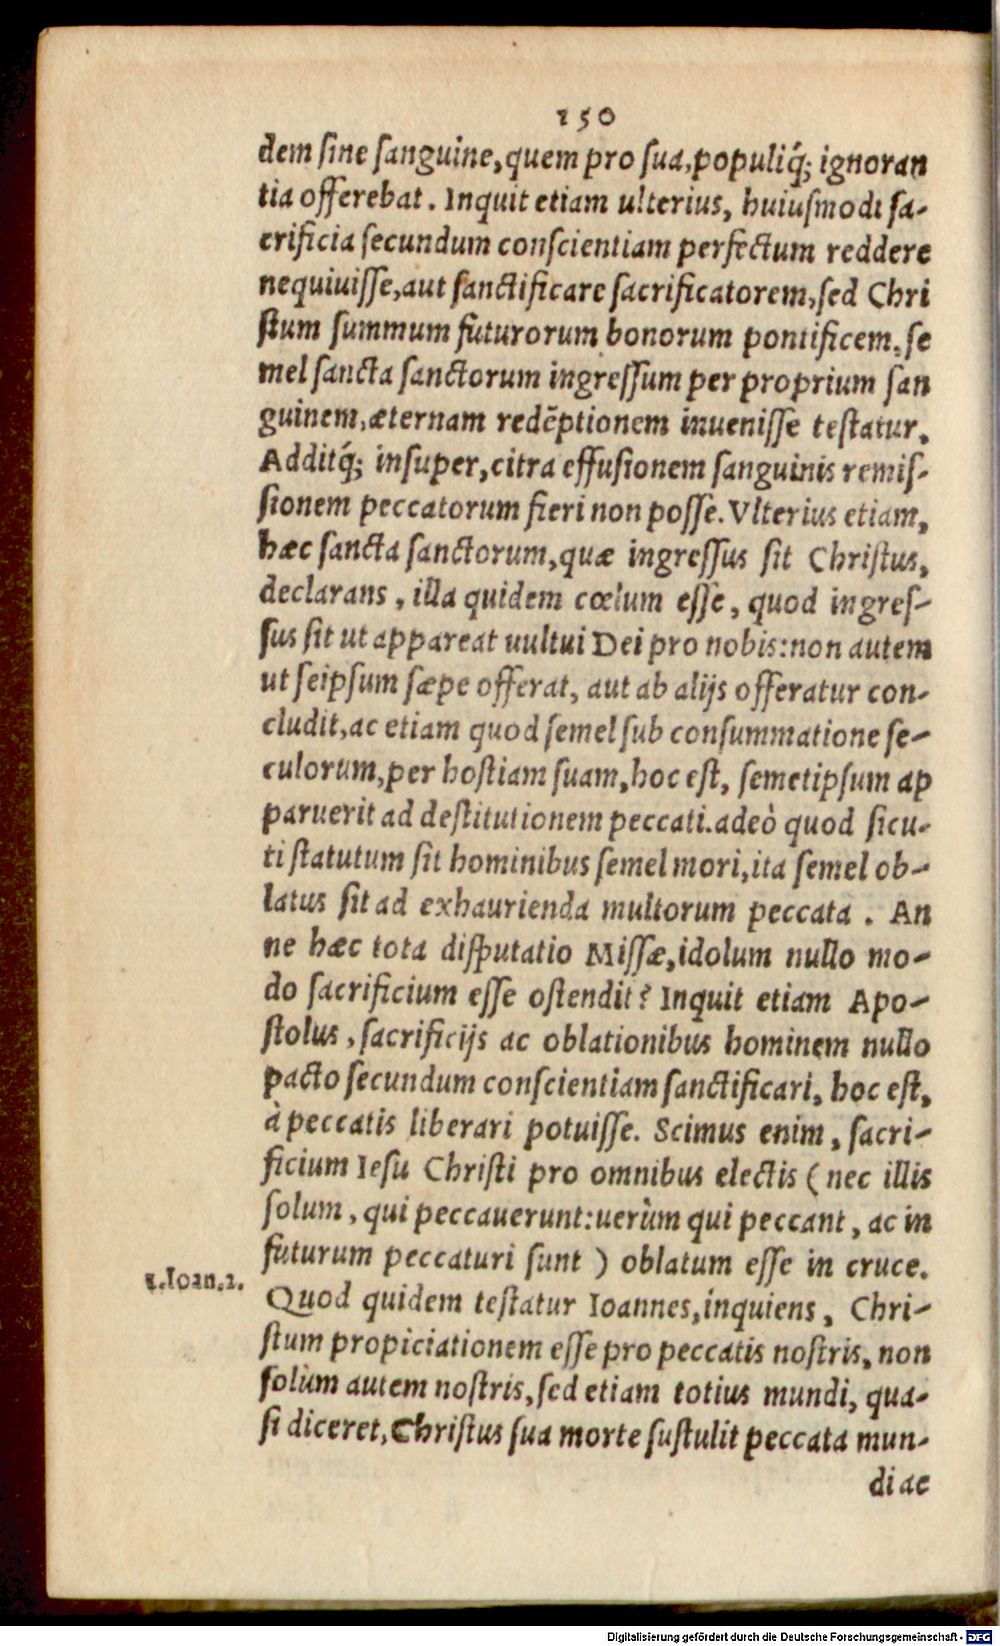 150
dem ſine ſanguine, quem pro ſua, populiq́; ignoran
tia offerebat. Inquit etiam ulterius, huiuſmodi ſa-
crificia ſecundum conſcientiam perfectum reddere
nequiuiſſe, aut ſanctificare ſacrificatorem, ſed Chri
ſtum ſummum futurorum bonorum pontificem, ſe
mel ſancta ſanctorum ingreſſum per proprium ſan
guinem, æternam redẽptionem inueniſſe teſtatur.
Additq́; inſuper, citra effuſionem ſanguinis remiſ-
ſionem peccatorum fieri non poſſe. Vlterius etiam,
hæc ſancta ſanctorum, quæ ingreſſus ſit Chriſtus,
declarans, illa quidem cœlum eſſe, quod ingreſ-
ſus ſit ut appareat uultui Dei pro nobis: non autem
ut ſeipſum ſæpe offerat, aut ab alijs offeratur con-
cludit, ac etiam quod ſemel ſub conſummatione ſe-
culorum, per hoſtiam ſuam, hoc eſt, ſemetipſum ap
paruerit ad deſtitutionem peccati. adeò quod ſicu-
ti ſtatutum ſit hominibus ſemel mori, ita ſemel ob-
latus ſit ad exhaurienda multorum peccata. An
ne hæc tota diſputatio Miſſæ, idolum nullo mo-
do ſacrificium eſſe oſtendit? Inquit etiam Apo-
ſtolus, ſacrificijs ac oblationibus hominem nullo
pacto ſecundum conſcientiam ſanctificari, hoc eſt,
à peccatis liberari potuiſſe. Scimus enim, ſacri-
ficium Ieſu Chriſti pro omnibus electis (nec illis
ſolum, qui peccauerunt: uerùm qui peccant, ac in
futurum peccaturi ſunt) oblatum eſſe in cruce.
1. Ioan. 2.
Quod quidem teſtatur Ioannes, inquiens, Chri-
ſtum propiciationem eſſe pro peccatis noſtris, non
ſolùm autem noſtris, ſed etiam totius mundi, qua-
ſi diceret, Chriſtus ſua morte ſuſtulit peccata mun-
di ac
Digitalisierung gefördert durch die Deutsche Forschungsgemeinschaft - DFG